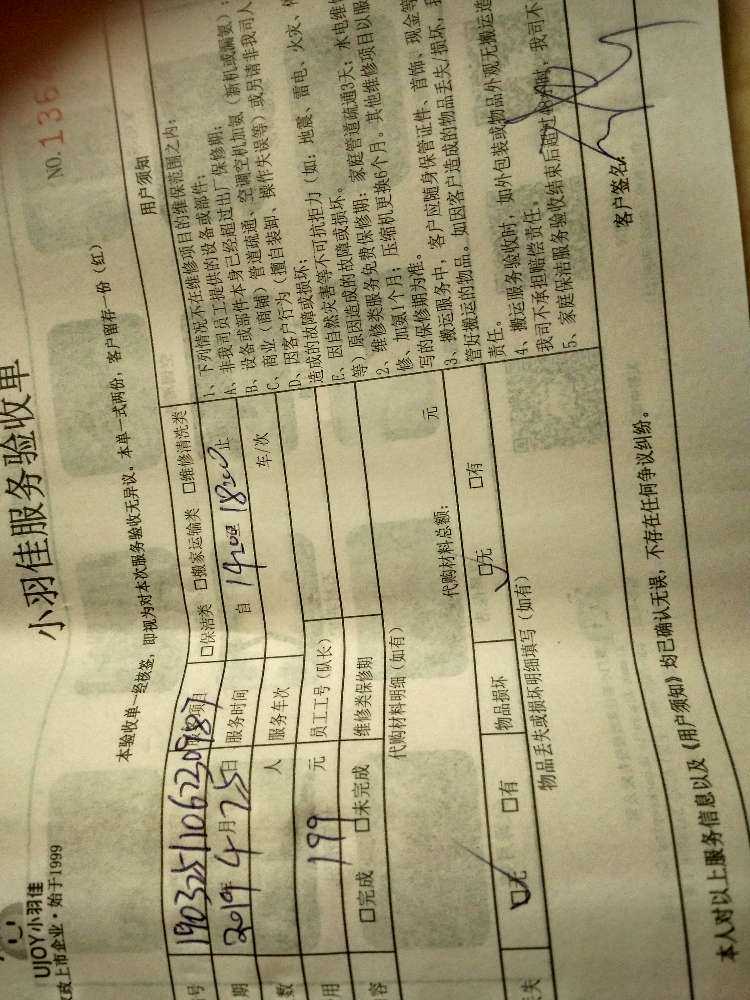 UJOY小羽佳
政上市企业·始于1999
小羽佳服务验收单
NO.136
本验收单一经核签，即视为对本次服务验收无异议。本单一式两份，客户留存一份（红）
号 190325110622098 项目 □保洁类 □搬家运输类 □维修清洗类
期 2019年4月25日 服务时间 自 14 至 18 止
数 人 服务车次 车/次
用 199 元 员工工号（队长）
容 □完成 □未完成 维修类保修期
代购材料明细（如有）
代购材料总额： 元
失 □无 □有 物品损坏 □无 □有
物品丢失或损坏明细填写（如有）
用户须知
1、下列情况不在维修项目的维保范围之内：
A、非我司员工提供的设备或部件；
B、设备或部件本身已经超过出厂保修期；
C、商业（商铺）管道疏通、空调空机加氨（新机或漏氨）；
D、因客户行为（擅自装卸、操作失误等）或另请非我司人
造成的故障或损坏；
E、因自然灾害等不可抗拒力（如：地震、雷电、火灾、
等）原因造成的故障或损坏。
2、维修类服务免费保修期：家庭管道疏通3天；水电维
修、加氨1个月；压缩机更换6个月。其他维修项目以服
写的保修期为准。
3、搬运服务中，客户应随身保管证件、首饰、现金等
管好搬运的物品。如因客户造成的物品丢失/损坏，
责任。
4、搬运服务验收时，如外包装或物品外观无搬运造
我司不承担赔偿责任。
5、家庭保洁服务验收结束后超过 时，我司不
本人对以上服务信息以及《用户须知》均已确认无误，不存在任何争议纠纷。
客户签名：